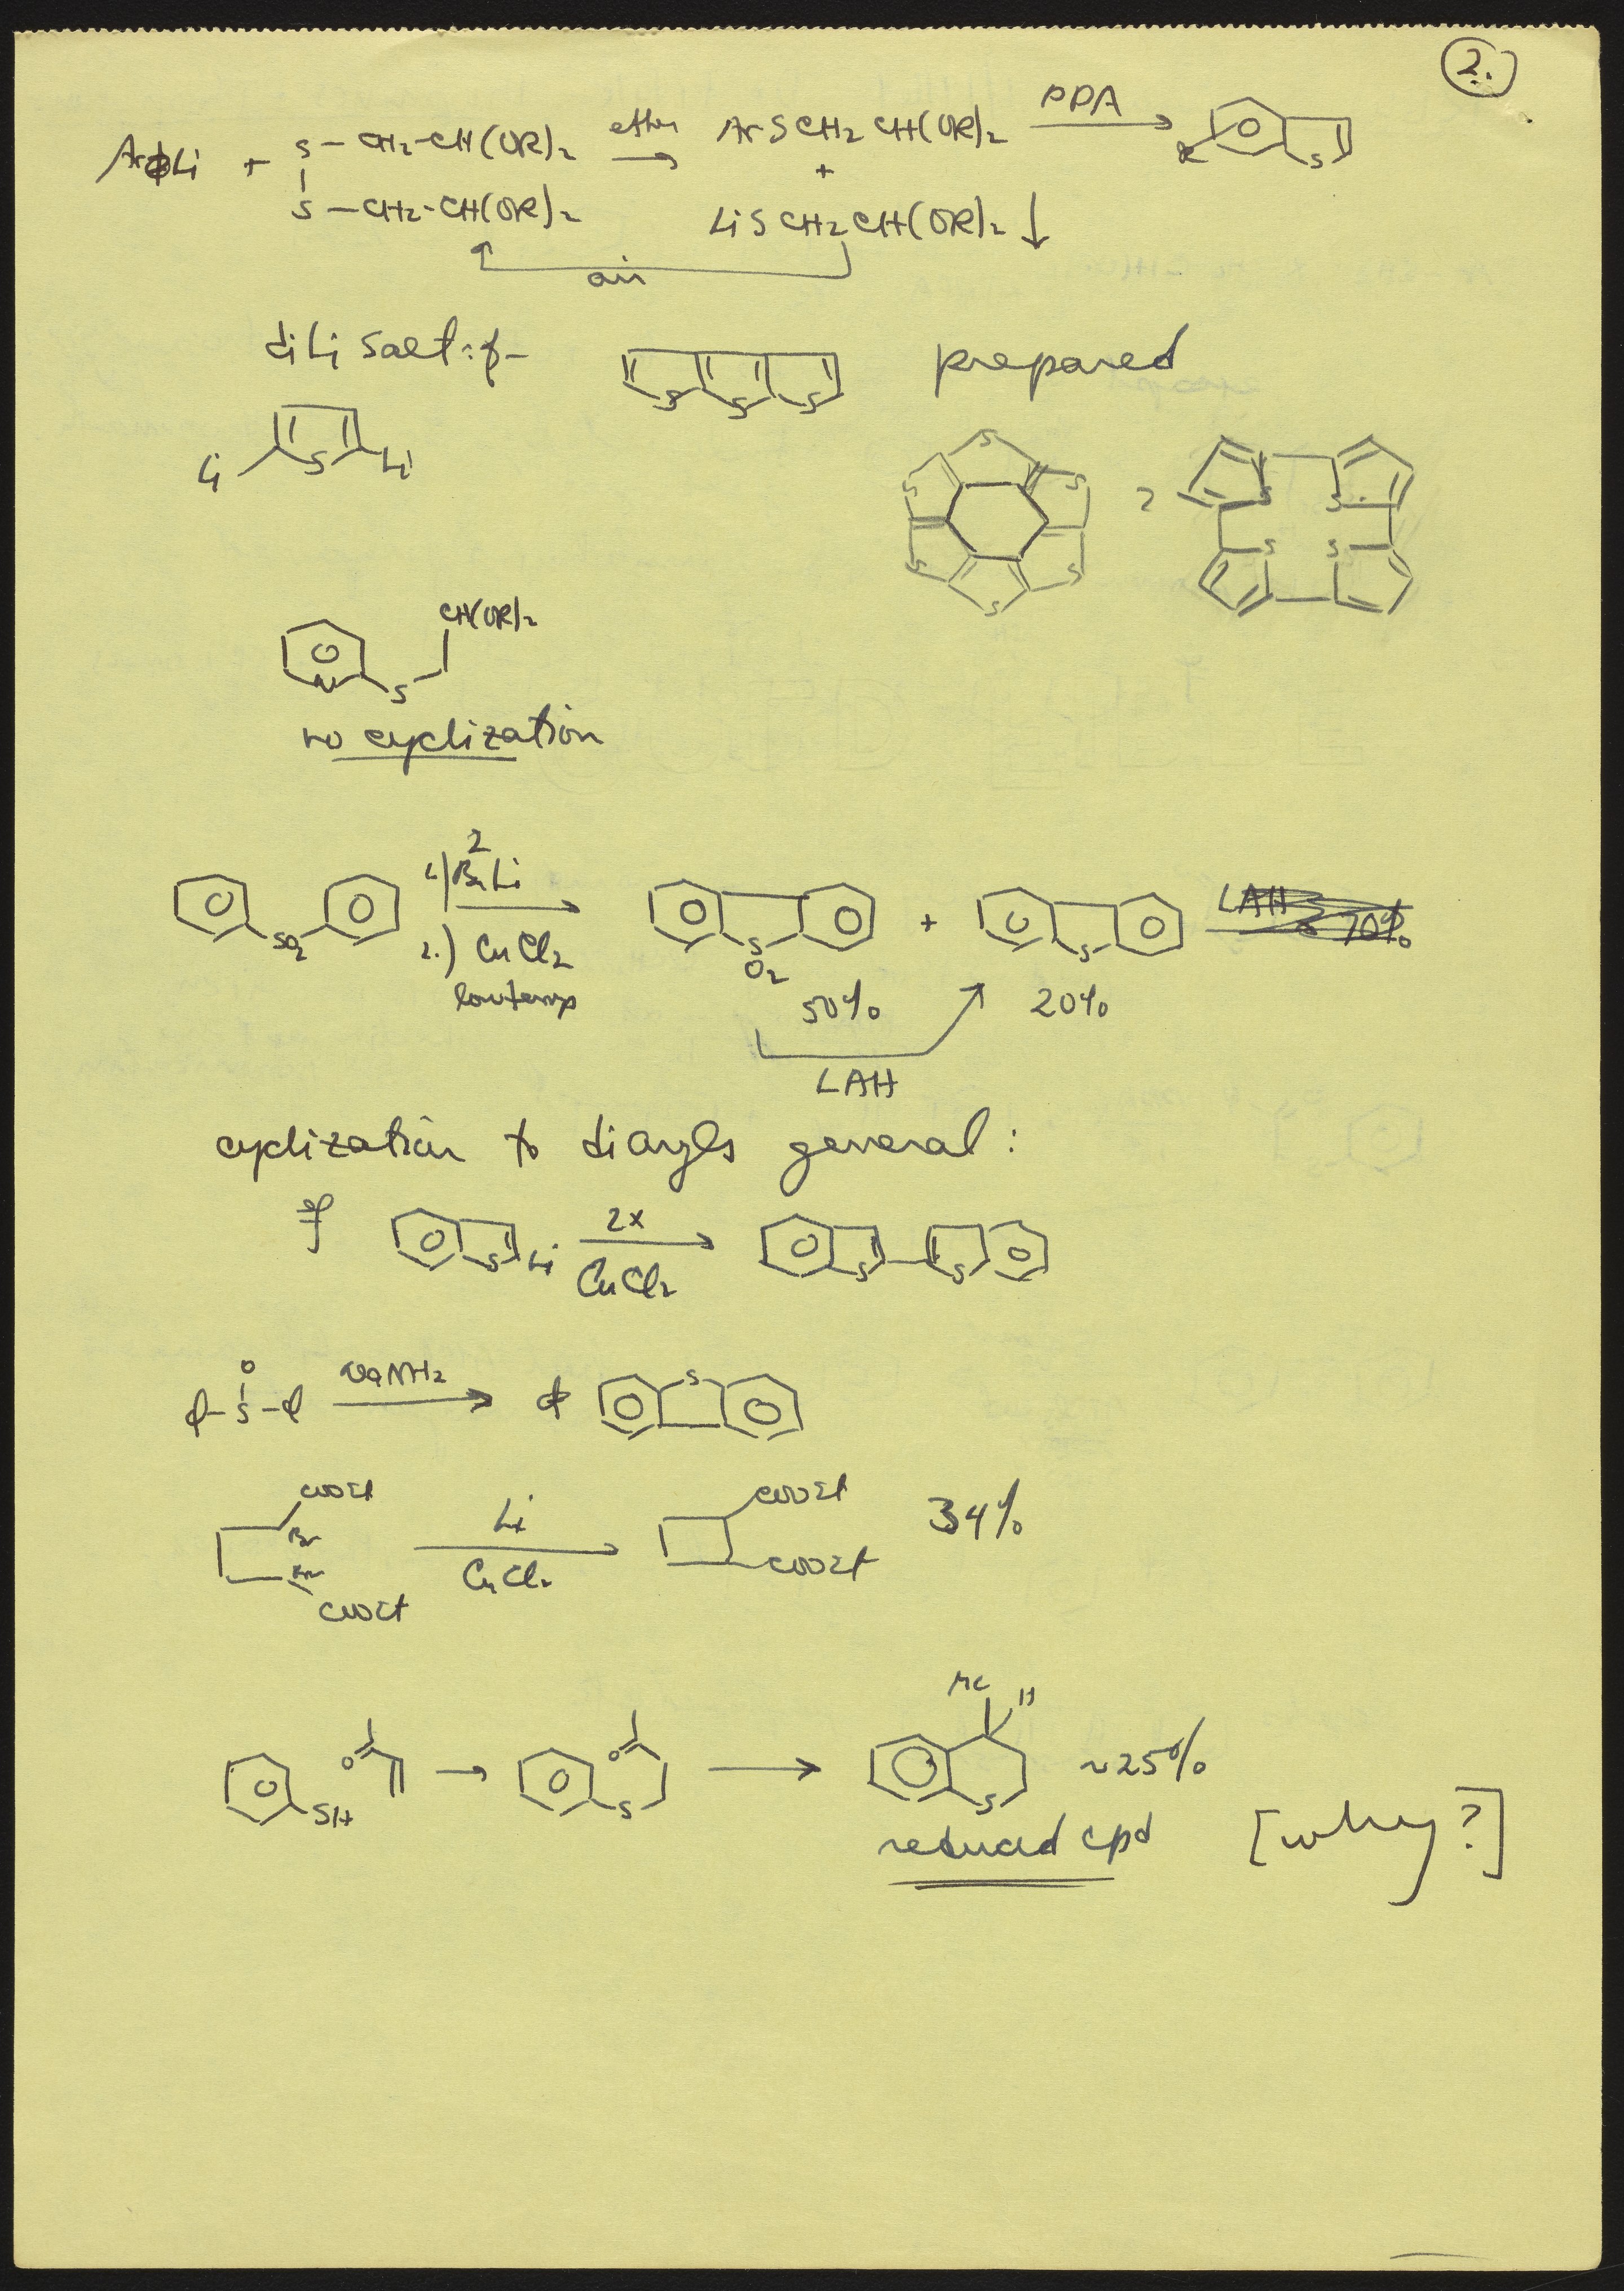 2.
ArLi + S-CH2-CH(OR)2 ether ArSCH2CH(OR)2 PPA R S
S-CH2-CH(OR)2 + LiSCH2CH(OR)2 ↓
air
diLi salt: prepared
S S S
Li S Li
S S S S S S ? S S S S
CH(OR)2
N S
no cyclization
SO2 1.) 2 BuLi S O2 + S
2.) CuCl2
low temp 50% 20%
LAH
cyclization to diaryls general:
if S Li 2x S S
CuCl2
φ-S-φ O NaNH2 S
COOEt Br Br COOEt Li CuCl2 COOEt COOEt 34%
SH O O S Me H S ~25%
reduced cpd [why?]